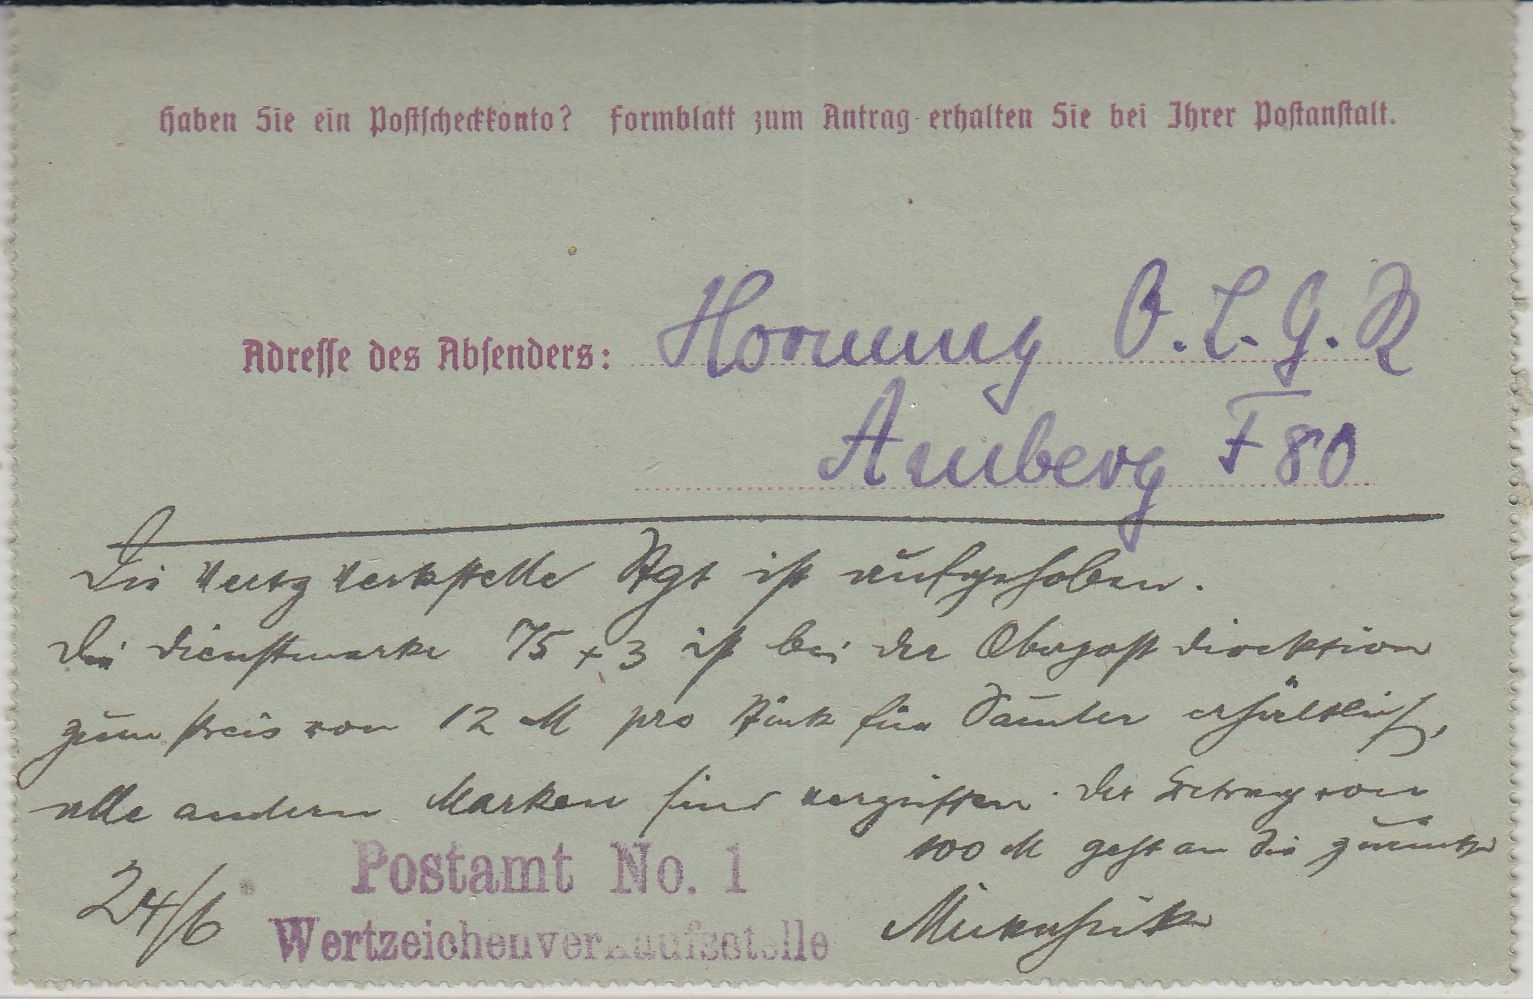 Haben Sie ein Postscheckkonto? Formblatt zum Antrag erhalten Sie bei Ihrer Postanstalt.
Adresse des Absenders: Hornung O.L.G.R
Amberg F 80
Die Wertz Verkstelle Stgt ist aufgehoben.
Die Dienstmarke 75 + 3 ist bei der Oberpostdirektion
zum Preis von 12 M pro Stück für Samler erhältlich,
alle andern Marken sind vergriffen. Der Betrag von
100 M geht an Sie zurück
24/6
Postamt No. 1
Wertzeichenverkaufsstelle